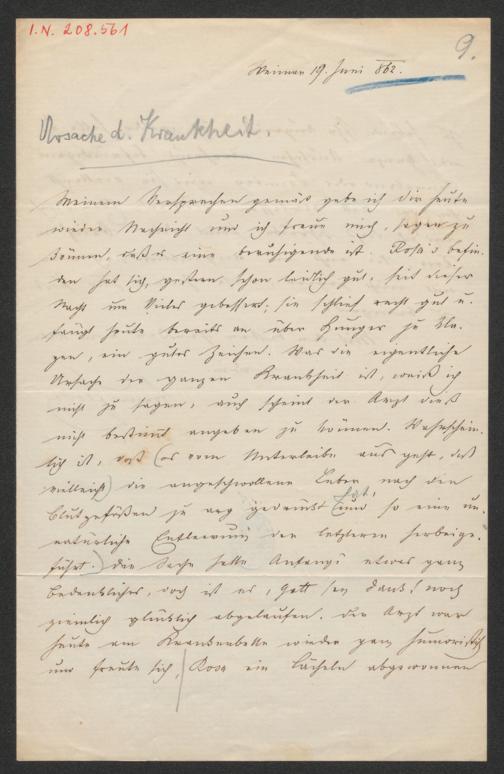 I.N. 208.561
9.
Weimar 19. Juni 862.
Ursache d. Krankheit.
Meinem Versprechen gemäß gebe ich dir heute
wieder Nachricht und ich freue mich, sagen zu
können, daß es eine beruhigende ist. Rosa's Befin-
den hat sich, gestern schon leidlich gut, seit dieser
Nacht um Vieles gebessert; sie schlief recht gut u.
fängt heute bereits an über Hunger zu kla-
gen, ein gutes Zeichen. Was die eigentliche
Ursache der ganzen Krankheit ist, weiß ich
nicht zu sagen, auch scheint der Arzt dieß
nicht bestimmt angeben zu können. Wahrschein-
lich ist, daß (es vom Unterleibe aus geht, daß
vielleicht) die angeschwollene Leber nach den
Blutgefäßen zu arg gedrückt hat, (und so eine un-
natürliche Entleerung der letzteren herbeige-
führt.) Die Sache hatte Anfangs etwas ganz
Bedenkliches, doch ist es, Gott sey Dank! noch
ziemlich glücklich abgelaufen. Der Arzt war
heute am Krankenbette wieder ganz humoristisch
und freute sich, Rosa ein Lächeln abgewonnen